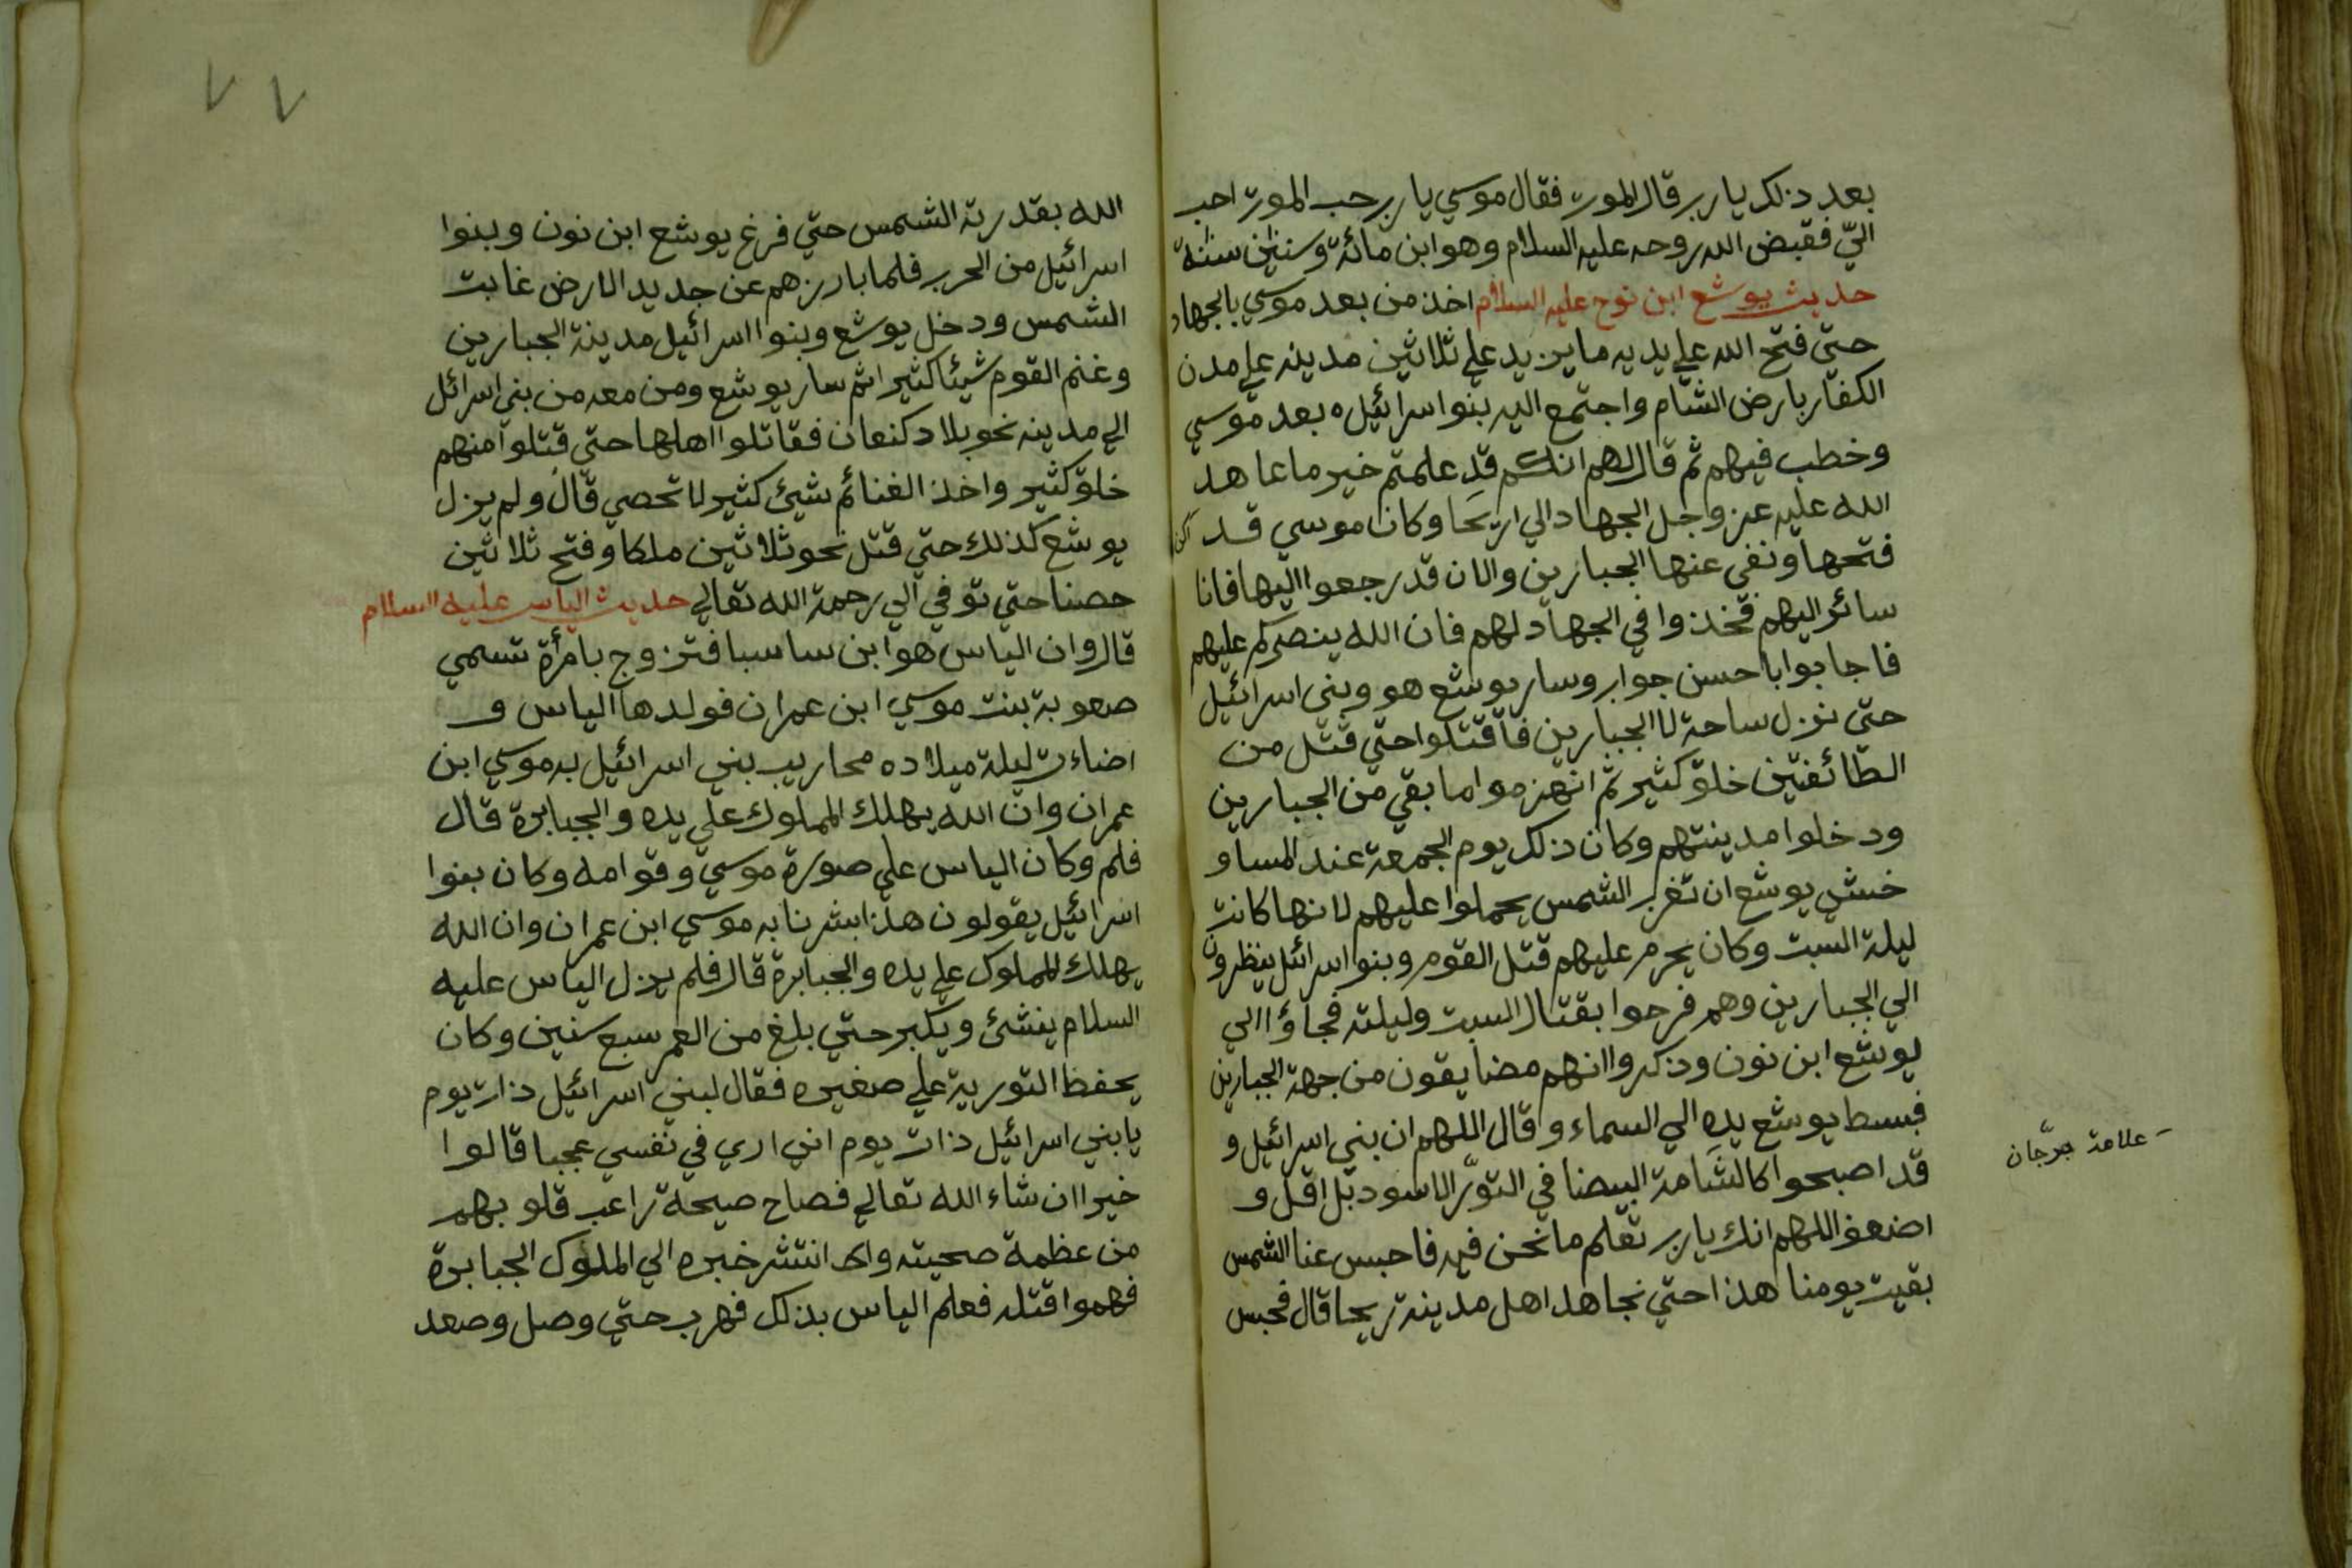 بعد ذلك يا رب قال الموت فقال موسي يا رب رحب الموت احب
اليّ فقبض الله روحه عليه السلام وهو ابن مائة وستين سنة
حديث يوشع ابن نوح عليه السلام اخذ من بعد موسي بالجهاد
حتي فتح الله علي يديه ما يزيد علي ثلاثين مدينه علي مدن
الكفار بارض الشام واجتمع اليه بنوا اسرائيل ه بعد موسي
وخطب فيهم ثم قال لهم انكم قد علمتم خير ما عاهد
الله عليه عز وجل الجهاد الي اريحا وكان موسي قد
فتحها ونفي عنها الجبارين والان قد رجعوا اليها فانا
سائر اليهم فخذوا في الجهاد لهم فان الله ينصركم عليهم
فاجابوا باحسن جواب وسار يوشع هو وبني اسرائيل
حتي نزل ساحة لا الجبارين فاقتتلوا حتي قتل من
الطائفتين خلق كثير ثم انهزموا ما بقي من الجبارين
ودخلوا مدينتهم وكان ذلك يوم الجمعة عند المسا و
خشي يوشع ان تغرب الشمس يحملوا عليهم لانها كانت
ليلة السبت وكان يحرم عليهم قتل القوم وبنوا اسرائيل ينظرون
الي الجبارين وهم فرحوا بقتال السبت وليلته فجاؤا الي
يوشع ابن نون وذكروا انهم مضايقون من جهة الجبارين
فبسط يوشع يده الي السماء وقال اللهم ان بني اسرائيل و
قد اصبحوا كالشامة البيضا في الثور الاسود بل اقل و
اضعف اللهم انك يا رب تعلم ما نحن فيه فاحبس عنا الشمس
بقيت يومنا هذا حتي نجاهد اهل مدينة ريحا قال فحبس
علامة جرّجان
٧٧
الله بقدرته الشمس حتي فرغ يوشع ابن نون وبنوا
اسرائيل من الحرب فلما بارزهم عن جديد الارض غابت
الشمس ودخل يوشع وبنوا اسرائيل مدينة الجبارين
وغنم القوم شيئا كثيرا ثم سار يوشع ومن معه من بني اسرائل
الي مدينه نحو بلاد كنعان فقاتلوا اهلها حتي قتلوا منهم
خلق كثير واخذ الغنائم شيئ كثير لا تحصي قال ولم يزل
يوشع كذلك حتي قتل نحو ثلاثين ملكا وفتح ثلاثين
حصنا حتي توفي الي رحمة الله تعالي حديث الياس عليه السلام
قال وان الياس هو ابن ساسبا فتزوج بامرأة تسمي
صعوبة بنت موسي ابن عمران فولدها الياس و
اضاءت ليلة ميلاده محاريب بني اسرائيل به موسي ابن
عمران وان الله يهلك المملوك علي يده والجبابرة قال
فلم وكان الياس علي صورة موسي وقوامه وكان بنوا
اسرائيل يقولون هذا بشرنا به موسي ابن عمران وان الله
يهلك المملوك علي يده والجبابرة قال فلم يزل الياس عليه
السلام ينشئ ويكبر حتي بلغ من العمر سبع سنين وكان
يحفظ التورية علي صغيره فقال لبني اسرائيل ذات يوم
يا بني اسرائيل ذات يوم اني اري في نفسي عجبا قالوا
خيرا ان شاء الله تعالي فصاح صيحة راعب قلوبهم
من عظمة صحيته انتشر خبره الي الملوك الجبابرة
فهموا قتله فعلم الياس بذلك فهرب حتي وصل وصعد